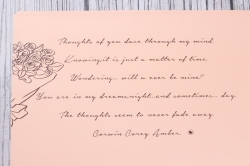 Thoughts of you dare through my mind.
Knowing it is just a matter of time.
Wondering... will u ever be mine?
You are in my dreams, night and sometimes... day.
The thoughts seem to never fade away.
Corwin Corey Amber.